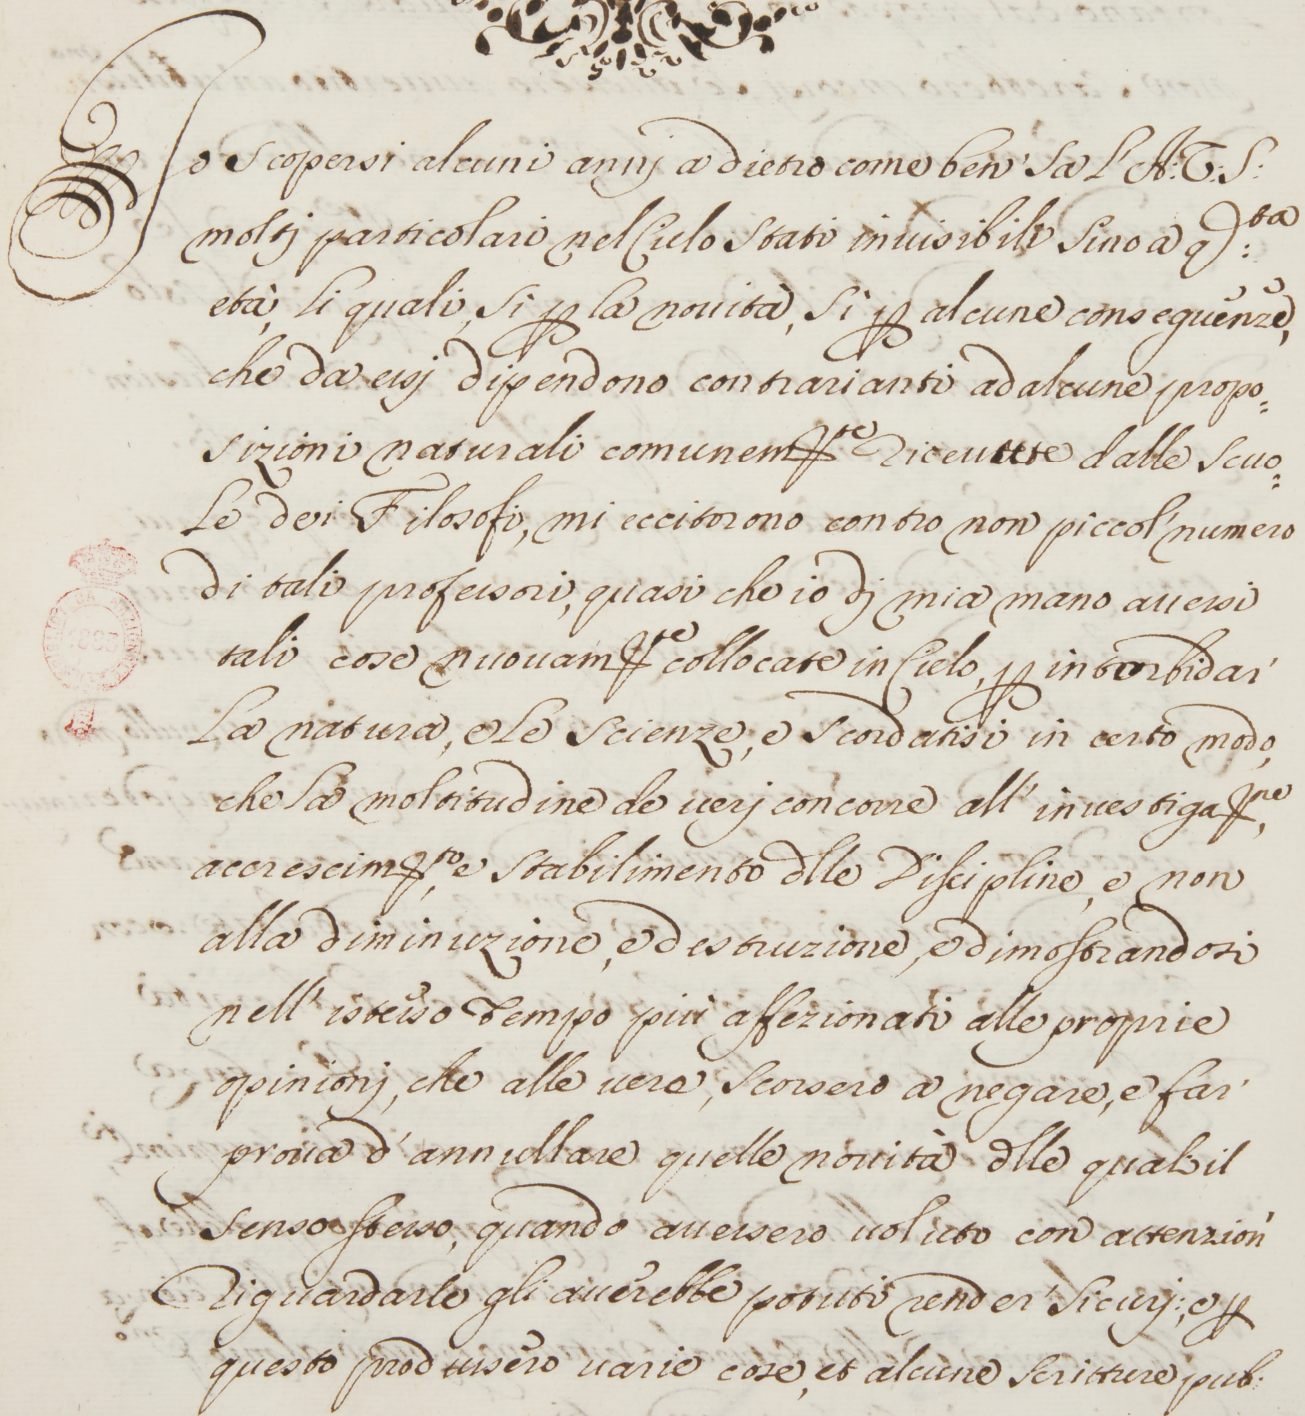 Io scopersi alcuni annj a dietro come ben' sa l'A: T: S:
moltj particolari nel Cielo stati inuisibili sino a q:ta
età, li quali, si p la nouità, si p alcune conseguenze,
che da essj dipendono contrarianti ad alcune propo=
sizioni naturali comunemte riceuute dalle scuo=
le dei Filosofi, mi eccitorono contro non piccol' numero
di tali professori, quasi che io dj mia mano auessi
tali cose nuouamte collocate in Cielo, p intorbidar'
la natura, e le scienze, e scordatisi in certo modo,
che la moltitudine de uerj concorre all' inuestigane,
accrescimto, e stabilimento dlle Discipline, e non
alla diminuzione, e destruzione, e dimostrandosi
nell' istesso tempo più affezionati alle proprie
opinionj, che alle uere, scorsero a negare, e far'
proua d' annullare quelle nouità dlle quali il
senso stesso, quando auessero uoluto con attenzion'
riguardarle gli auerebbe potuti render' sicurj; e p
questo produssero uarie cose, et alcune scritture pub: